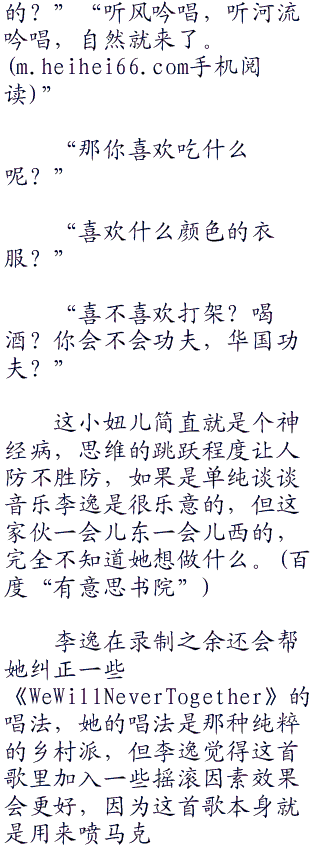 的？”“听风吟唱，听河流
吟唱，自然就来了。
(m.heihei66.com手机阅
读)”
“那你喜欢吃什么
呢？”
“喜欢什么颜色的衣
服？”
“喜不喜欢打架？喝
酒？你会不会功夫，华国功
夫？”
这小妞儿简直就是个神
经病，思维的跳跃程度让人
防不胜防，如果是单纯谈谈
音乐李逸是很乐意的，但这
家伙一会儿东一会儿西的，
完全不知道她想做什么。(百
度“有意思书院”)
李逸在录制之余还会帮
她纠正一些
《WeWillNeverTogether》的
唱法，她的唱法是那种纯粹
的乡村派，但李逸觉得这首
歌里加入一些摇滚因素效果
会更好，因为这首歌本身就
是用来喷马克